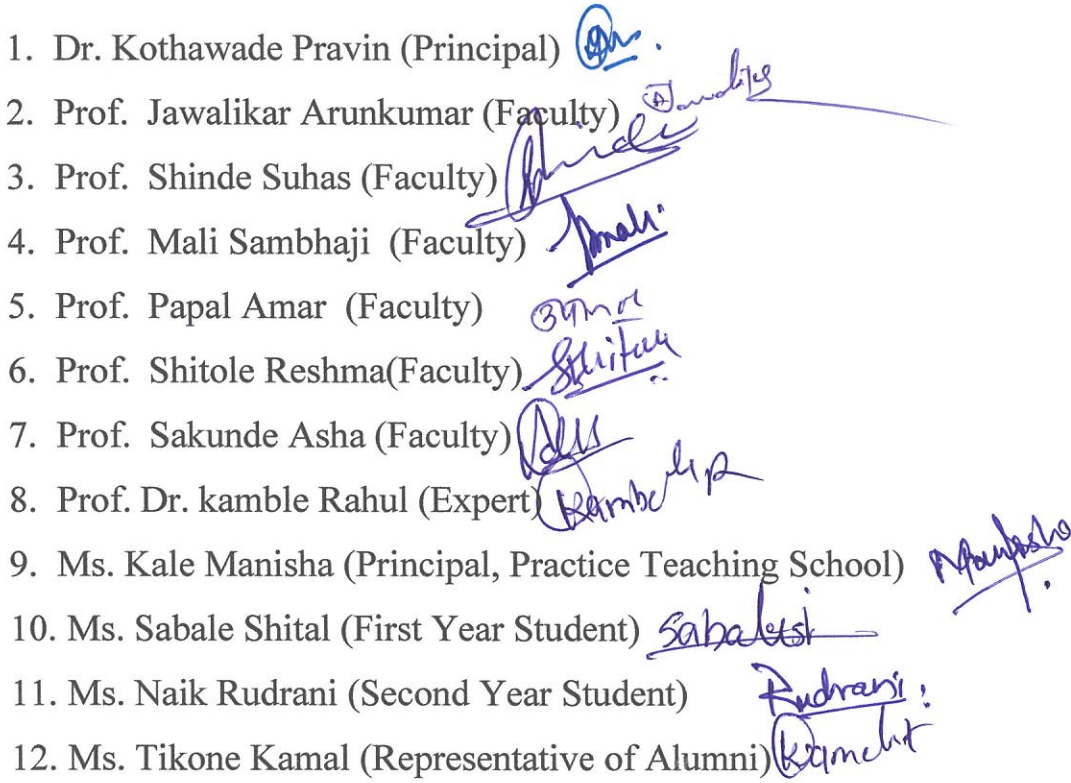 1. Dr. Kothawade Pravin (Principal)
2. Prof. Jawalikar Arunkumar (Faculty)
3. Prof. Shinde Suhas (Faculty) Shinde
4. Prof. Mali Sambhaji (Faculty)
5. Prof. Papal Amar (Faculty) अमर
6. Prof. Shitole Reshma(Faculty)
7. Prof. Sakunde Asha (Faculty)
8. Prof. Dr. kamble Rahul (Expert)
9. Ms. Kale Manisha (Principal, Practice Teaching School)
10. Ms. Sabale Shital (First Year Student)
11. Ms. Naik Rudrani (Second Year Student) Rudrani
12. Ms. Tikone Kamal (Representative of Alumni)